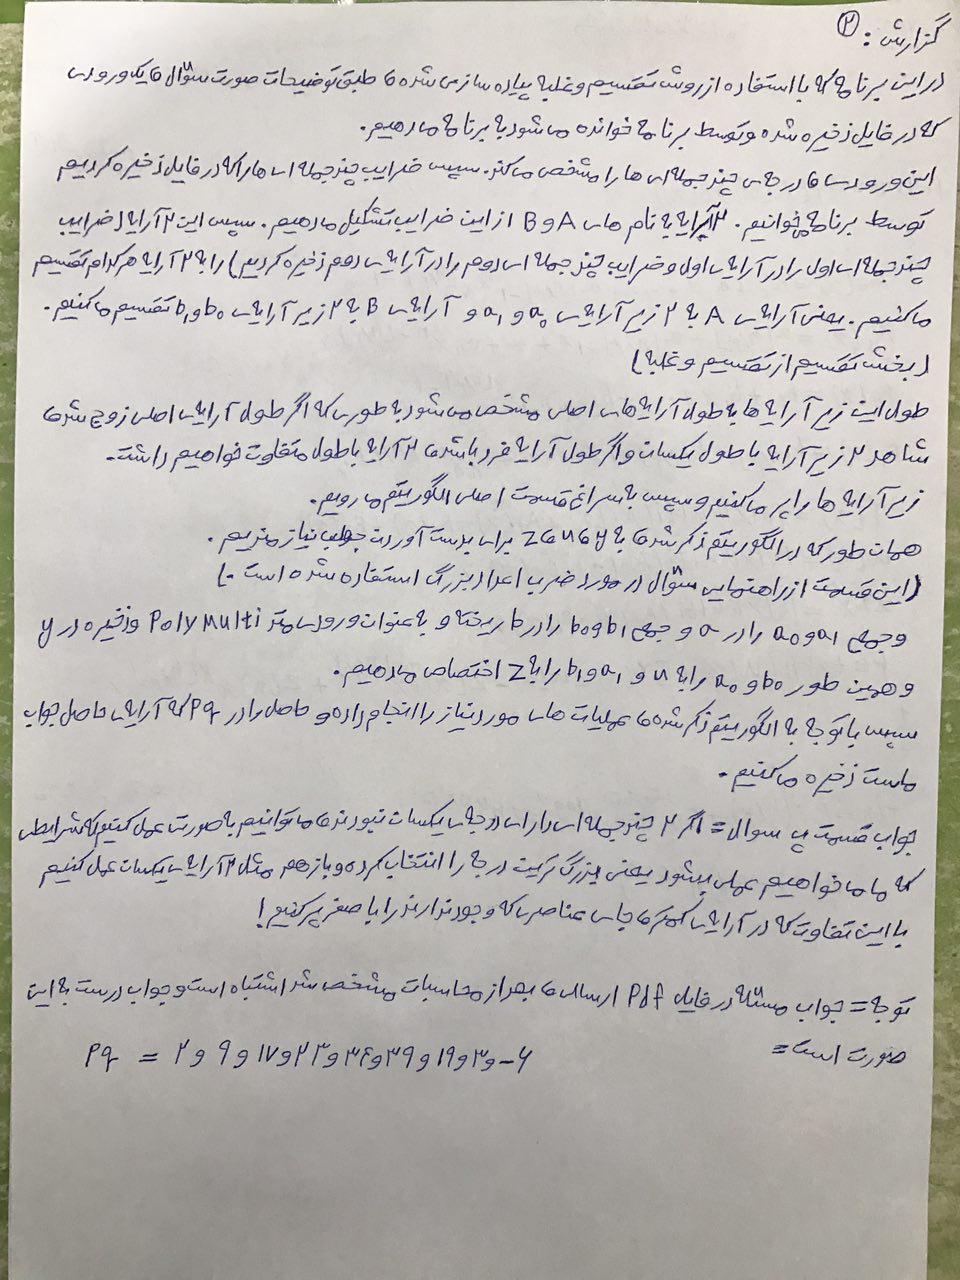 گزارش : ②
در این برنامه که با استفاده از روش تقسیم و غلبه پیاده سازی شده ، طبق توضیحات صورت سؤال ، یک ورودی
که در فایل ذخیره شده و توسط برنامه خوانده میشود به برنامه میدهیم.
این ورودی ، درجه ی چندجمله ای ها را مشخص میکند. سپس ضرایب چندجمله ای ها را که در فایل ذخیره کردیم
توسط برنامه میخوانیم. ۲ آرایه با نام های A و B از این ضرایب تشکیل میدهیم. سپس این ۲ آرایه (ضرایب
چندجمله ای اول را در آرایه ی اول و ضرایب چند جمله ای دوم را در آرایه ی دوم ذخیره کردیم) را به ۲ آرایه هر کدام تقسیم
میکنیم. یعنی آرایه ی A به ۲ زیر آرایه ی a₀ و a₁ و آرایه ی B به ۲ زیر آرایه ی b₀ و b₁ تقسیم میکنیم.
(بخش تقسیم از تقسیم و غلبه)
طول این زیر آرایه ها به طول آرایه های اصلی مشخص می شود به طوری که اگر طول آرایه ی اصلی زوج شد ،
شاهد ۲ زیر آرایه با طول یکسان و اگر طول آرایه فرد باشد ، ۲ آرایه با طول متفاوت خواهیم داشت.
زیر آرایه ها را پر میکنیم و سپس به سراغ قسمت اصلی الگوریتم میرویم.
همان طور که در الگوریتم ذکر شد ، به y ، u ، z برای بدست آوردن جواب نیازمندیم.
(این قسمت از راهنمایی سؤال در مورد ضرب اعداد بزرگ استفاده شده است.)
و جمع a₁ و a₀ را در a و جمع b₁ و b₀ را در b ریخته و به عنوان ورودی متد PolyMulti و ذخیره در y
و همین طور b₀ و a₀ را به u و a₁ و b₁ را به z اختصاص میدهیم.
سپس با توجه به الگوریتم ذکر شده ، عملیات های مورد نیاز را انجام داده و حاصل را در Pq که آرایه ی حاصل جواب
ماست ذخیره میکنیم.
جواب قسمت ب سوال = اگر ۲ چندجمله ای دارای درجه ی یکسان نبودند ، میتوانیم به صورتی عمل کنیم که شرایطی
که ما میخواهیم عملی بشود یعنی بزرگ ترین درجه را انتخاب کرده و باز هم مثل ۲ آرایه ی یکسان عمل کنیم
با این تفاوت که در آرایه ی کمتر ، جای عناصری که وجود ندارند را با صفر پر کنیم!
توجه = جواب مسئله در فایل Pdf ارسالی ، بعد از محاسبات مشخص شد اشتباه است و جواب درست به این
صورت است =
Pq = ۲ و ۹ و ۱۷ و ۲۳ و ۳۶ و ۳۹ و ۱۹ و ۳ و ۶-